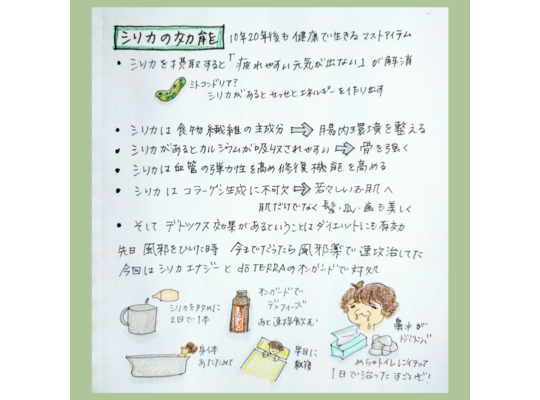 シリカの効能 10年20年後も健康で生きるマストアイテム
• シリカを摂取すると「疲れやすい元気が出ない」が解消
ミトコンドリア?
シリカがあるとせっせとエネルギーを作り出す
• シリカは食物繊維の主成分 ⇨ 腸内環境を整える
• シリカがあるとカルシウムが吸収されやすい ⇨ 骨を強く
• シリカは血管の弾力性を高め修復機能を高める
• シリカはコラーゲン生成に不可欠 ⇨ 若々しいお肌へ
肌だけでなく髪・爪・歯も美しく
• そして デトックス効果があるということはダイエットにも有効
先日 風邪をひいた時 今までだったら風邪薬で速攻治してた
今回はシリカエナジーと dōTERRAのオンガードで対処
シリカを多めに
2日で1本
オンガードで
ディフューズ
あと直接飲む
鼻水が
身体
あたためて
早目に
就寝
めちゃトイレに行って
1日で治ったすごいぞ!